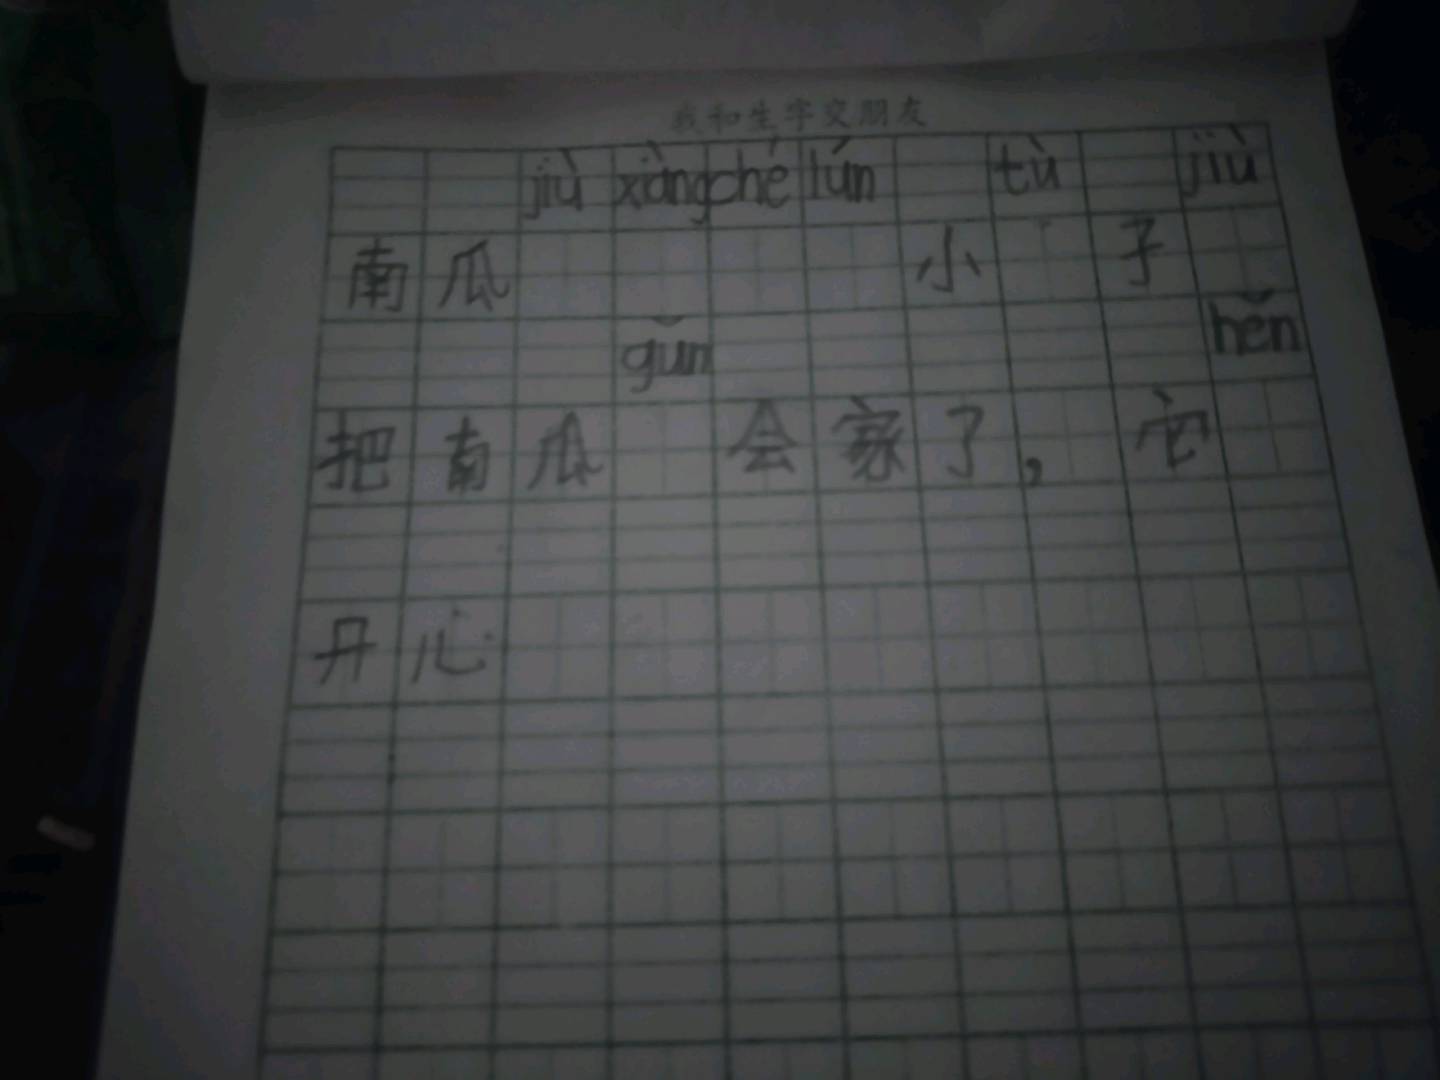 我和生字交朋友
jiù xàng ché lún tù jiù
南瓜 小 子
gǔn hěn
把南瓜 会家了，它
开心